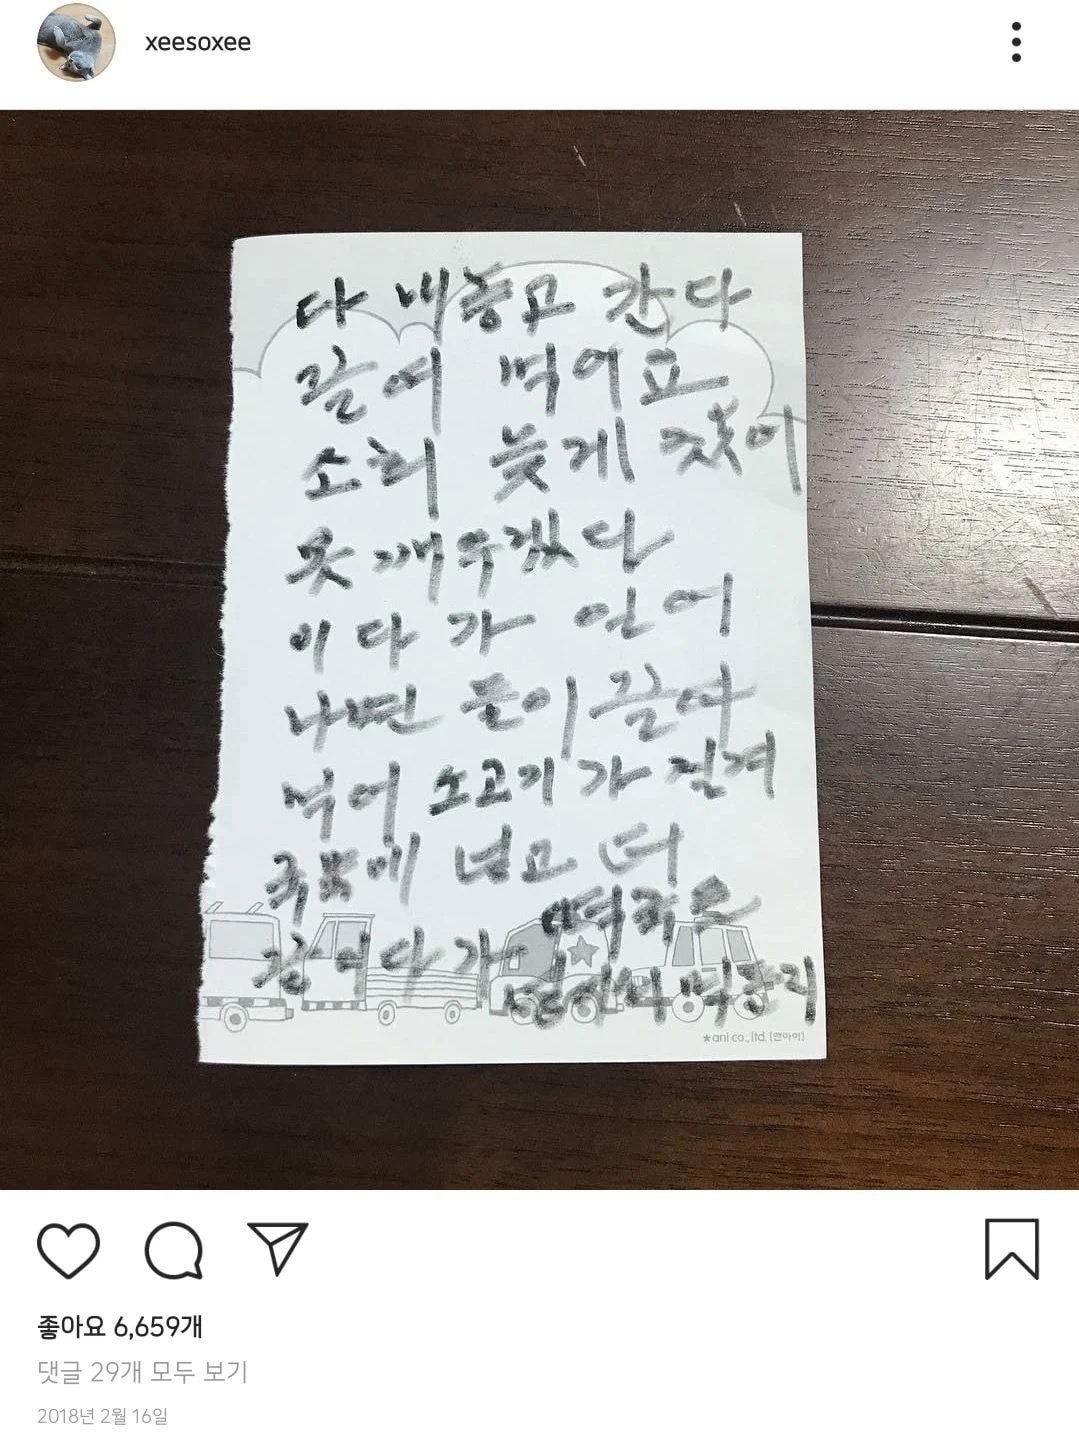 xeesoxee
다 내놓고 간다
끌여 먹어요
소희 늦게 잤어
못 깨우겠다
이다가 일어
나면 둘이 끌여
먹어 소고기가 질겨
푹 넣고
끌이다가 떡국은
먼저 먹
★ani co., ltd. [앤아이]
좋아요 6,659개
댓글 29개 모두 보기
2018년 2월 16일